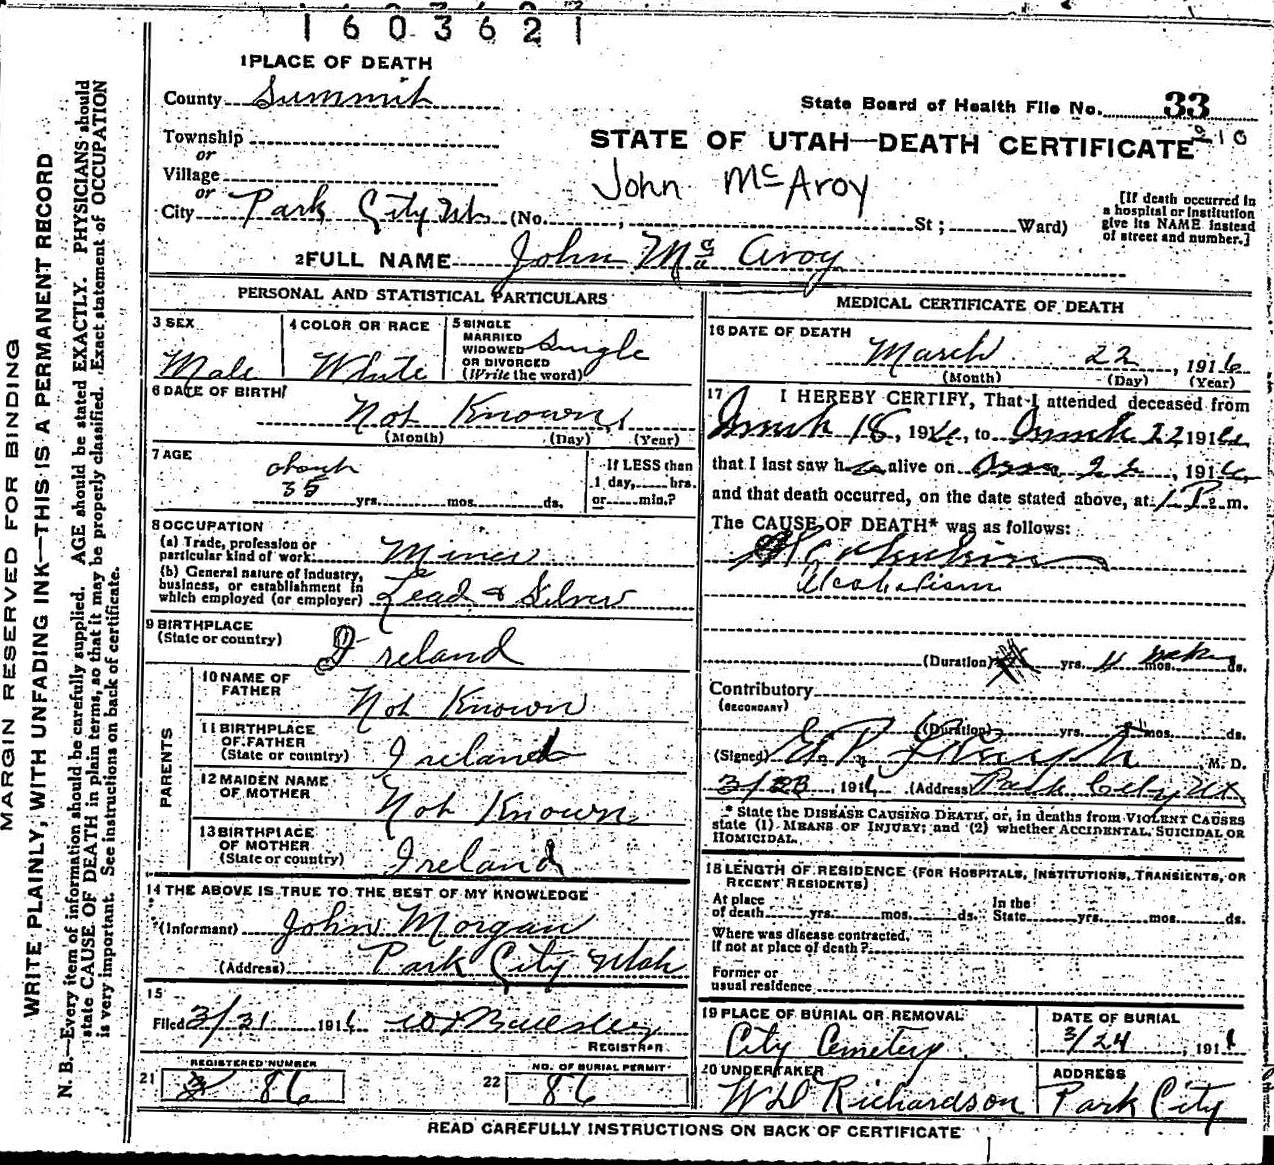 1603621
1 PLACE OF DEATH
County Summit
State Board of Health File No. 33
210
Township
STATE OF UTAH—DEATH CERTIFICATE
or
Village
John McAroy
or
City Park City Ut (No. , St ; Ward)
[If death occurred in a hospital or institution give its NAME instead of street and number.]
2 FULL NAME John Mc Avoy
PERSONAL AND STATISTICAL PARTICULARS
3 SEX
Male
4 COLOR OR RACE
White
5 SINGLE
MARRIED
WIDOWED
OR DIVORCED
(Write the word)
Single
6 DATE OF BIRTH
Not Known
(Month) (Day) (Year)
7 AGE
about
35 yrs. mos. ds.
If LESS than
1 day, hrs.
or min.?
8 OCCUPATION
(a) Trade, profession or
particular kind of work Miner
(b) General nature of industry,
business, or establishment in
which employed (or employer) Lead & Silver
9 BIRTHPLACE
(State or country) Ireland
PARENTS
10 NAME OF
FATHER Not Known
11 BIRTHPLACE
OF FATHER
(State or country) Ireland
12 MAIDEN NAME
OF MOTHER Not Known
13 BIRTHPLACE
OF MOTHER
(State or country) Ireland
14 THE ABOVE IS TRUE TO THE BEST OF MY KNOWLEDGE
(Informant) John Morgan
(Address) Park City Utah
15
Filed 3/31 1916
REGISTRAR
REGISTERED NUMBER
21 86
NO. OF BURIAL PERMIT
22 86
MEDICAL CERTIFICATE OF DEATH
16 DATE OF DEATH
March 22, 1916
(Month) (Day) (Year)
17 I HEREBY CERTIFY, That I attended deceased from
March 18, 1916, to March 22 1916
that I last saw h alive on 22, 1916,
and that death occurred, on the date stated above, at 1 P. m.
The CAUSE OF DEATH* was as follows:
Alcoholism
(Duration) yrs. mos. ds.
Contributory
(SECONDARY)
(Duration) yrs. mos. ds.
(Signed) M. D.
3/23, 1916 (Address) Park City Ut
* State the DISEASE CAUSING DEATH, or, in deaths from VIOLENT CAUSES
state (1) MEANS OF INJURY; and (2) whether ACCIDENTAL, SUICIDAL OR
HOMICIDAL.
18 LENGTH OF RESIDENCE (FOR HOSPITALS, INSTITUTIONS, TRANSIENTS, OR
RECENT RESIDENTS)
At place
of death yrs. mos. ds.
In the
State yrs. mos. ds.
Where was disease contracted,
if not at place of death?
Former or
usual residence
19 PLACE OF BURIAL OR REMOVAL
City Cemetery
DATE OF BURIAL
3/24, 1916
20 UNDERTAKER
W D Richardson
ADDRESS
Park City
READ CAREFULLY INSTRUCTIONS ON BACK OF CERTIFICATE
MARGIN RESERVED FOR BINDING
WRITE PLAINLY, WITH UNFADING INK—THIS IS A PERMANENT RECORD
N. B.—Every item of information should be carefully supplied. AGE should be stated EXACTLY. PHYSICIANS should
state CAUSE OF DEATH in plain terms, so that it may be properly classified. Exact statement of OCCUPATION
is very important. See instructions on back of certificate.